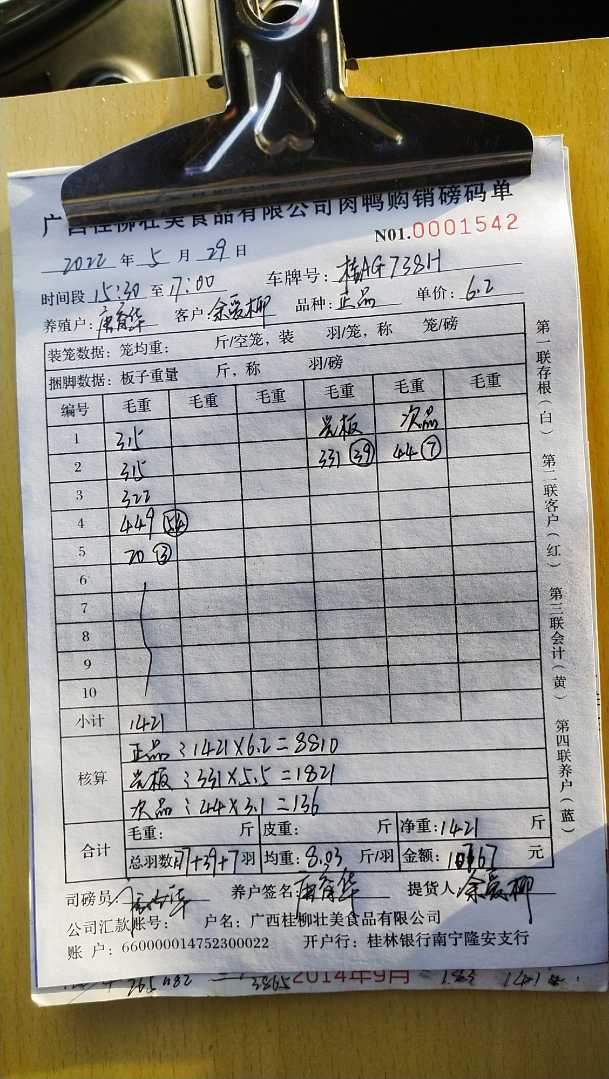 广西桂柳壮美食品有限公司肉鸭购销磅码单
NO1.0001542
2022年5月29日
时间段15:30至17:00 车牌号:桂AG738H
养殖户: 客户:余爱柳 品种:正品 单价:6.2
装笼数据:笼均重: 斤/空笼,装 羽/笼,称 笼/磅
捆脚数据:板子重量 斤,称 羽/磅
编号 毛重 毛重 毛重 毛重 毛重 毛重
1 315 光板 次品
2 315 331 39 44 7
3 322
4 449 54
5 20 3
6
7
8
9
10
小计 1421
核算 正品:1421×6.2=8810
光板:331×5.5=1821
次品:44×3.1=136
合计 毛重: 斤 皮重: 斤 净重:1421 斤
总羽数 7+39+7羽 均重:8.03斤/羽 金额:10767元
司磅员: 养户签名: 提货人:余爱柳
公司汇款账号: 户名:广西桂柳壮美食品有限公司
账户:660000014752300022 开户行:桂林银行南宁隆安支行
第一联存根(白) 第二联客户(红) 第三联会计(黄) 第四联养户(蓝)
3865 2014年9月